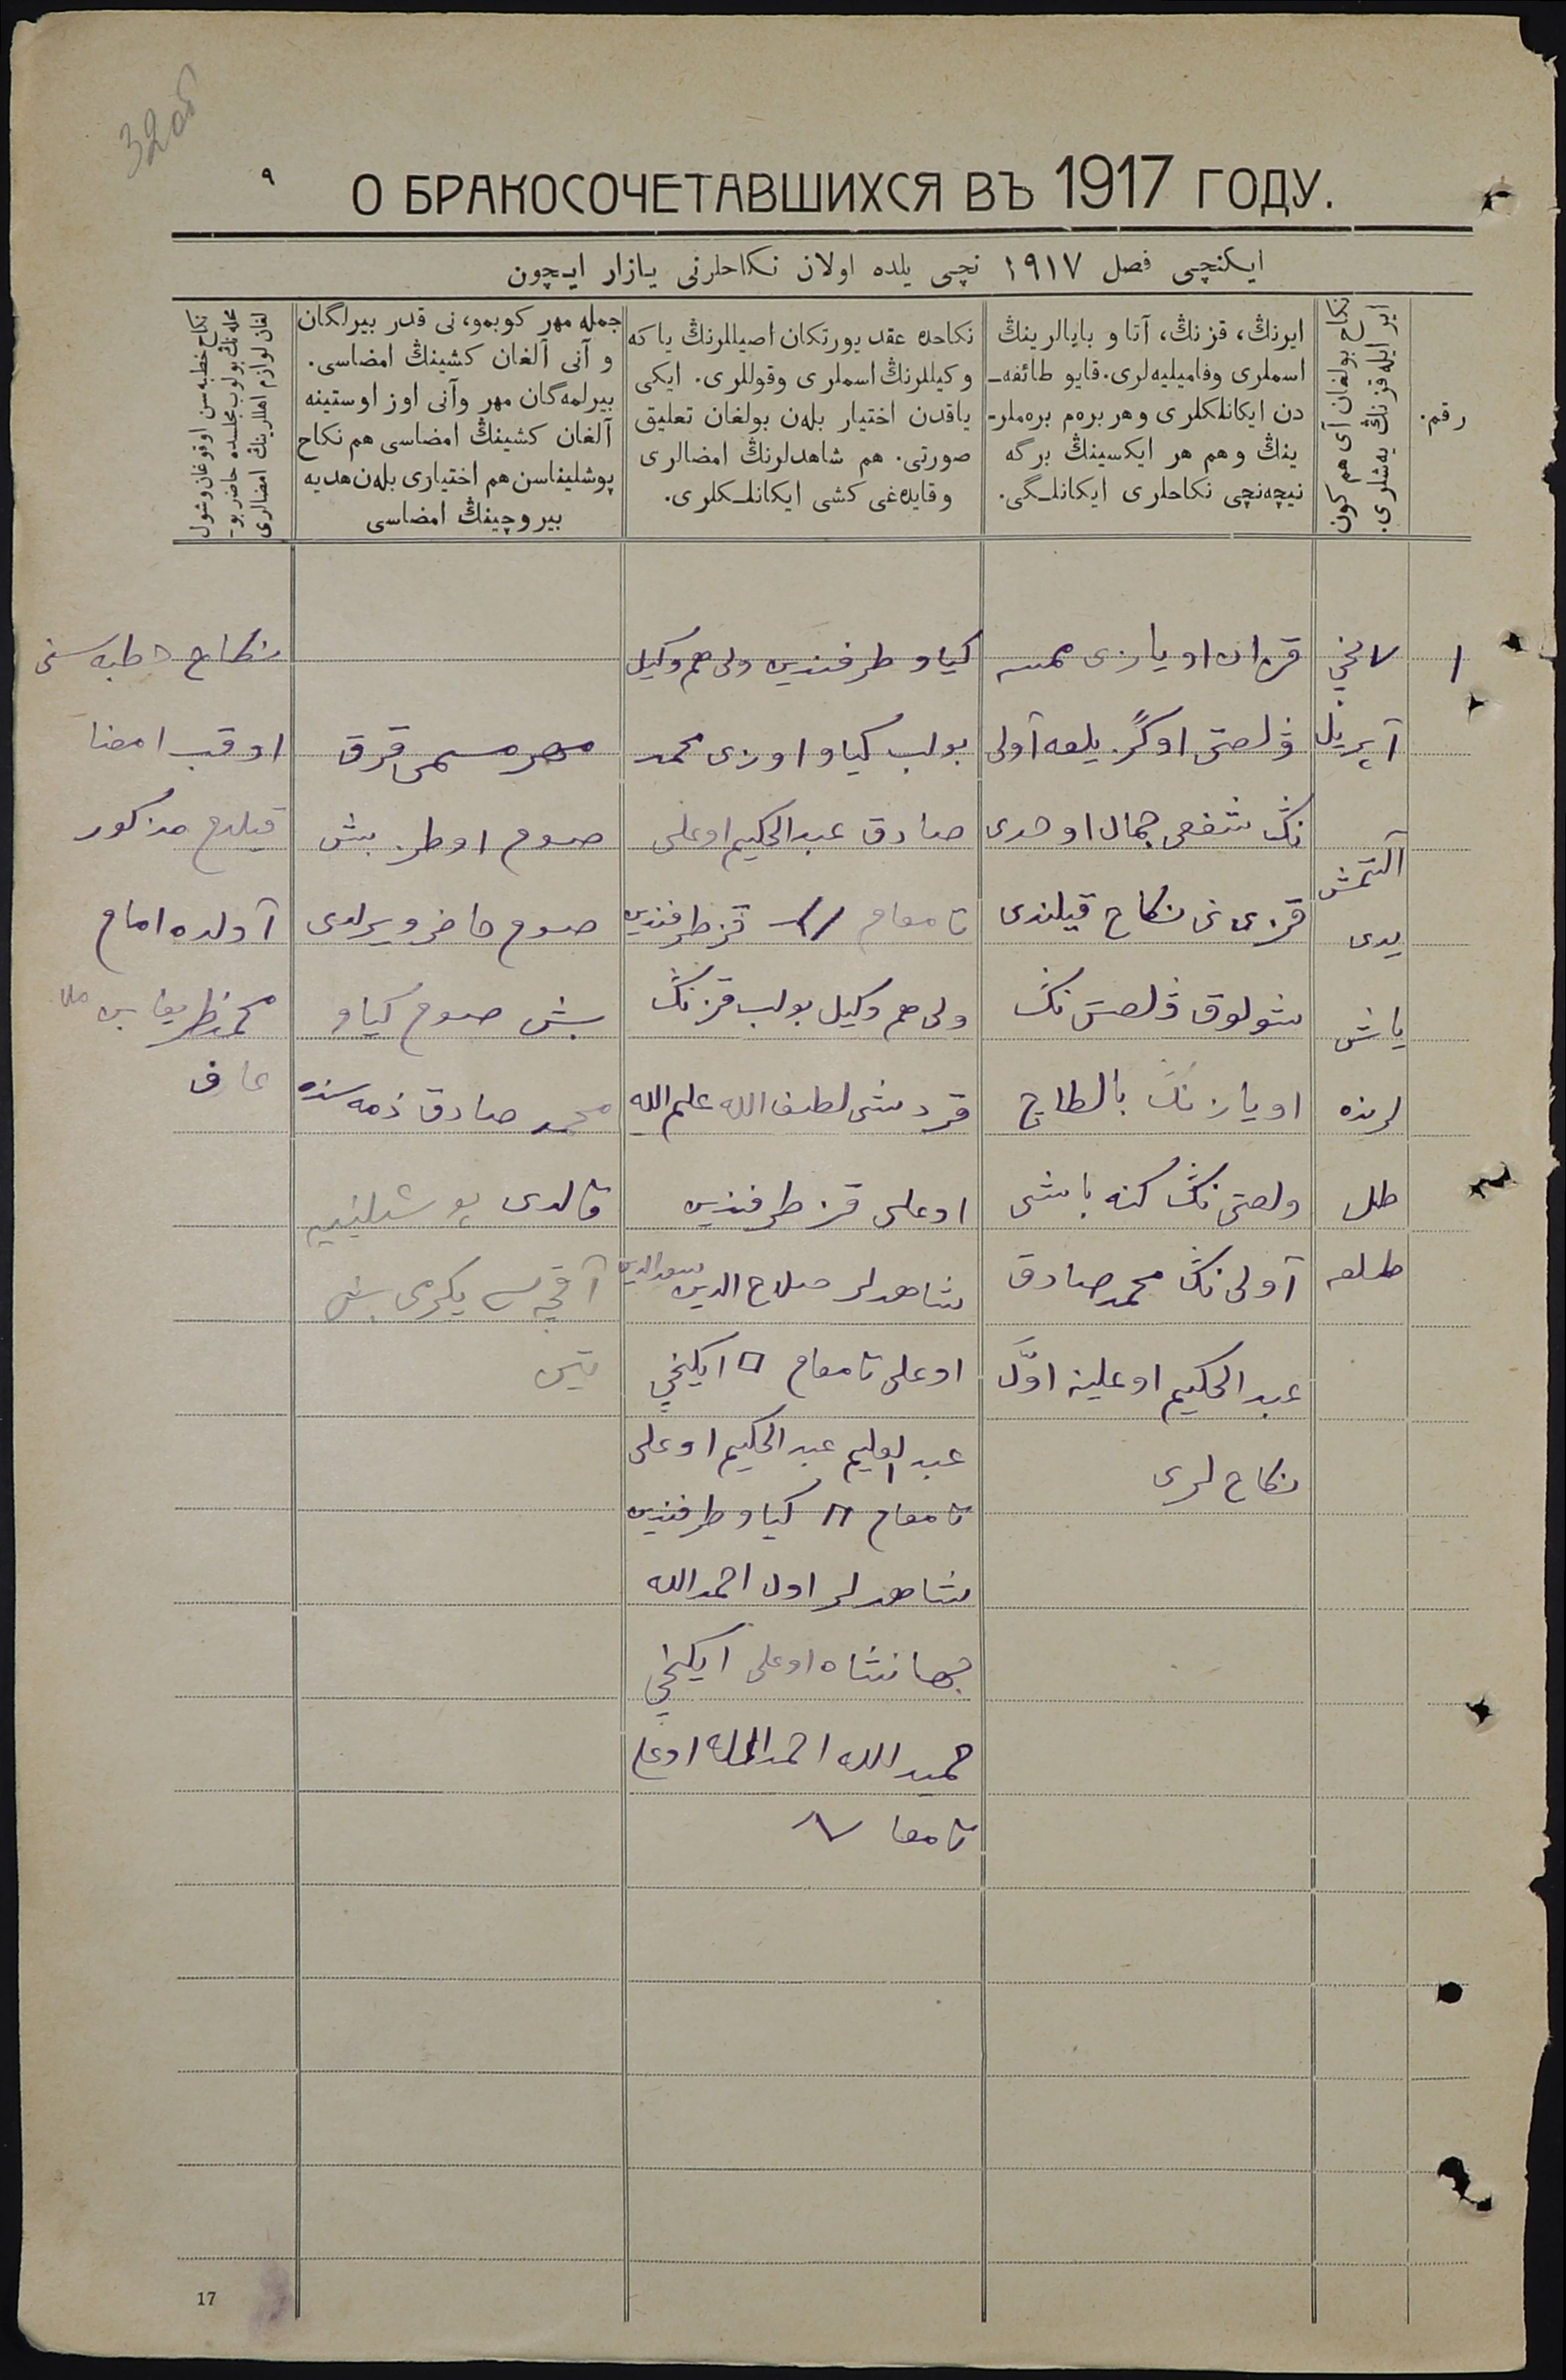 32 об
٩
О БРАКОСОЧЕТАВШИХСЯ ВЪ 1917 ГОДУ.
ایكنچی فصل ١٩١٧ نچی یلده اولان نكاحلرنی یازار ایچون
رقم.
نكاح بولغان آی هم كون
ایر ایله قزنڭ یه‌شلری.
ایرنڭ، قزنڭ، آتا و بابالرینڭ
اسملری وفامیلیه‌لری. قایو طائفه‌ـ
دن ایكانلكلری وهر بره‌م بره‌ملرـ
ینڭ وهم هر ایكسینڭ برگه
نیچه‌نچی نكاحلری ایكانلـگی.
نكاحده عقد یورتكان اصیللرنڭ یا كه
وكیللرنڭ اسملری وقوللری. ایكی
یاقدن اختیار بله‌ن بولغان تعلیق
صورتی. هم شاهدلرنڭ امضالری
وقایده‌غی كشی ایكانلـكلری.
جمله مهر كوبمو، نی قدر بیرلگان
و آنی آلغان كشینڭ امضاسی.
بیرلمه‌گان مهر وآنی اوز اوستینه
آلغان كشینڭ امضاسی هم نكاح
پوشلیناسن هم اختیاری بله‌ن هدیه
بیروچینڭ امضاسی
نكاح خطبه‌سن اوقوغان وشول
محله‌نڭ بولوب مجلسده حاضر بوـ
لغان لوازم اهللرینڭ امضالری
١
٧ نچی
آپریل
آلتمش
یدی
یاش
لرنده
قزان اویازی
ڤلصتی اوگز یلعه آولی
نڭ شفعی جمال اوحدی
قزی نی نكاح قیلندی
شولوق ڤلصتی نڭ
اویازنڭ بالطاچ
ولصتی نڭ كنه باشی
آولی نڭ محمد صادق
عبد الحكیم اوغلینه اوّل
نكاح لری
كیاو طرفندین ولی هم وكیل
بولب كیاو اوزی محمد
صادق عبدالحكیم اوغلی
تامغام قز طرفندین
ولی هم وكیل بولب قزنڭ
قردشی لطف الله علم الله
اوغلی قز طرفندین
شاهدلر صلاح الدین سعد الدین
اوغلی تامغام ایكنچی
عبد العلیم عبد الحكیم اوغلی
تامغام كیاو طرفندین
شاهدلر اول احمد الله
جهانشاه اوغلی ایكنچی
حمید الله احمد الله اوغلی
تامغا
مهر مسمی قرق
صوم اوطز بش
صوم حاضر ویرلدی
بش صوم كیاو
محمد صادق ذمه سنده
قالدی پوشلینه
آقچه سی یكرمی بش
تین
نكاح خطبه سنی
اوقب امضا
قیلدم مذكور
آولده امام
محمد ظریف
17